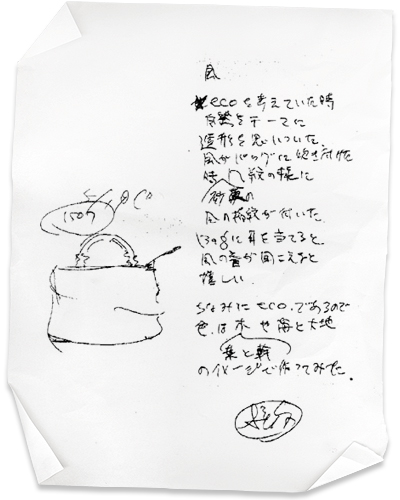 風
ecoを考えていた時
自然をテーマに
造形を思いついた。
風がバッグに吹き付けた
時、風紋の様に
砂漠の
風の模様が付いた。
bagに耳を当てると、
風の音が聞こえると
嬉しい。
ちなみにeco.であるので
色.は木や海と大地
葉と幹
のイメージで作ってみた。